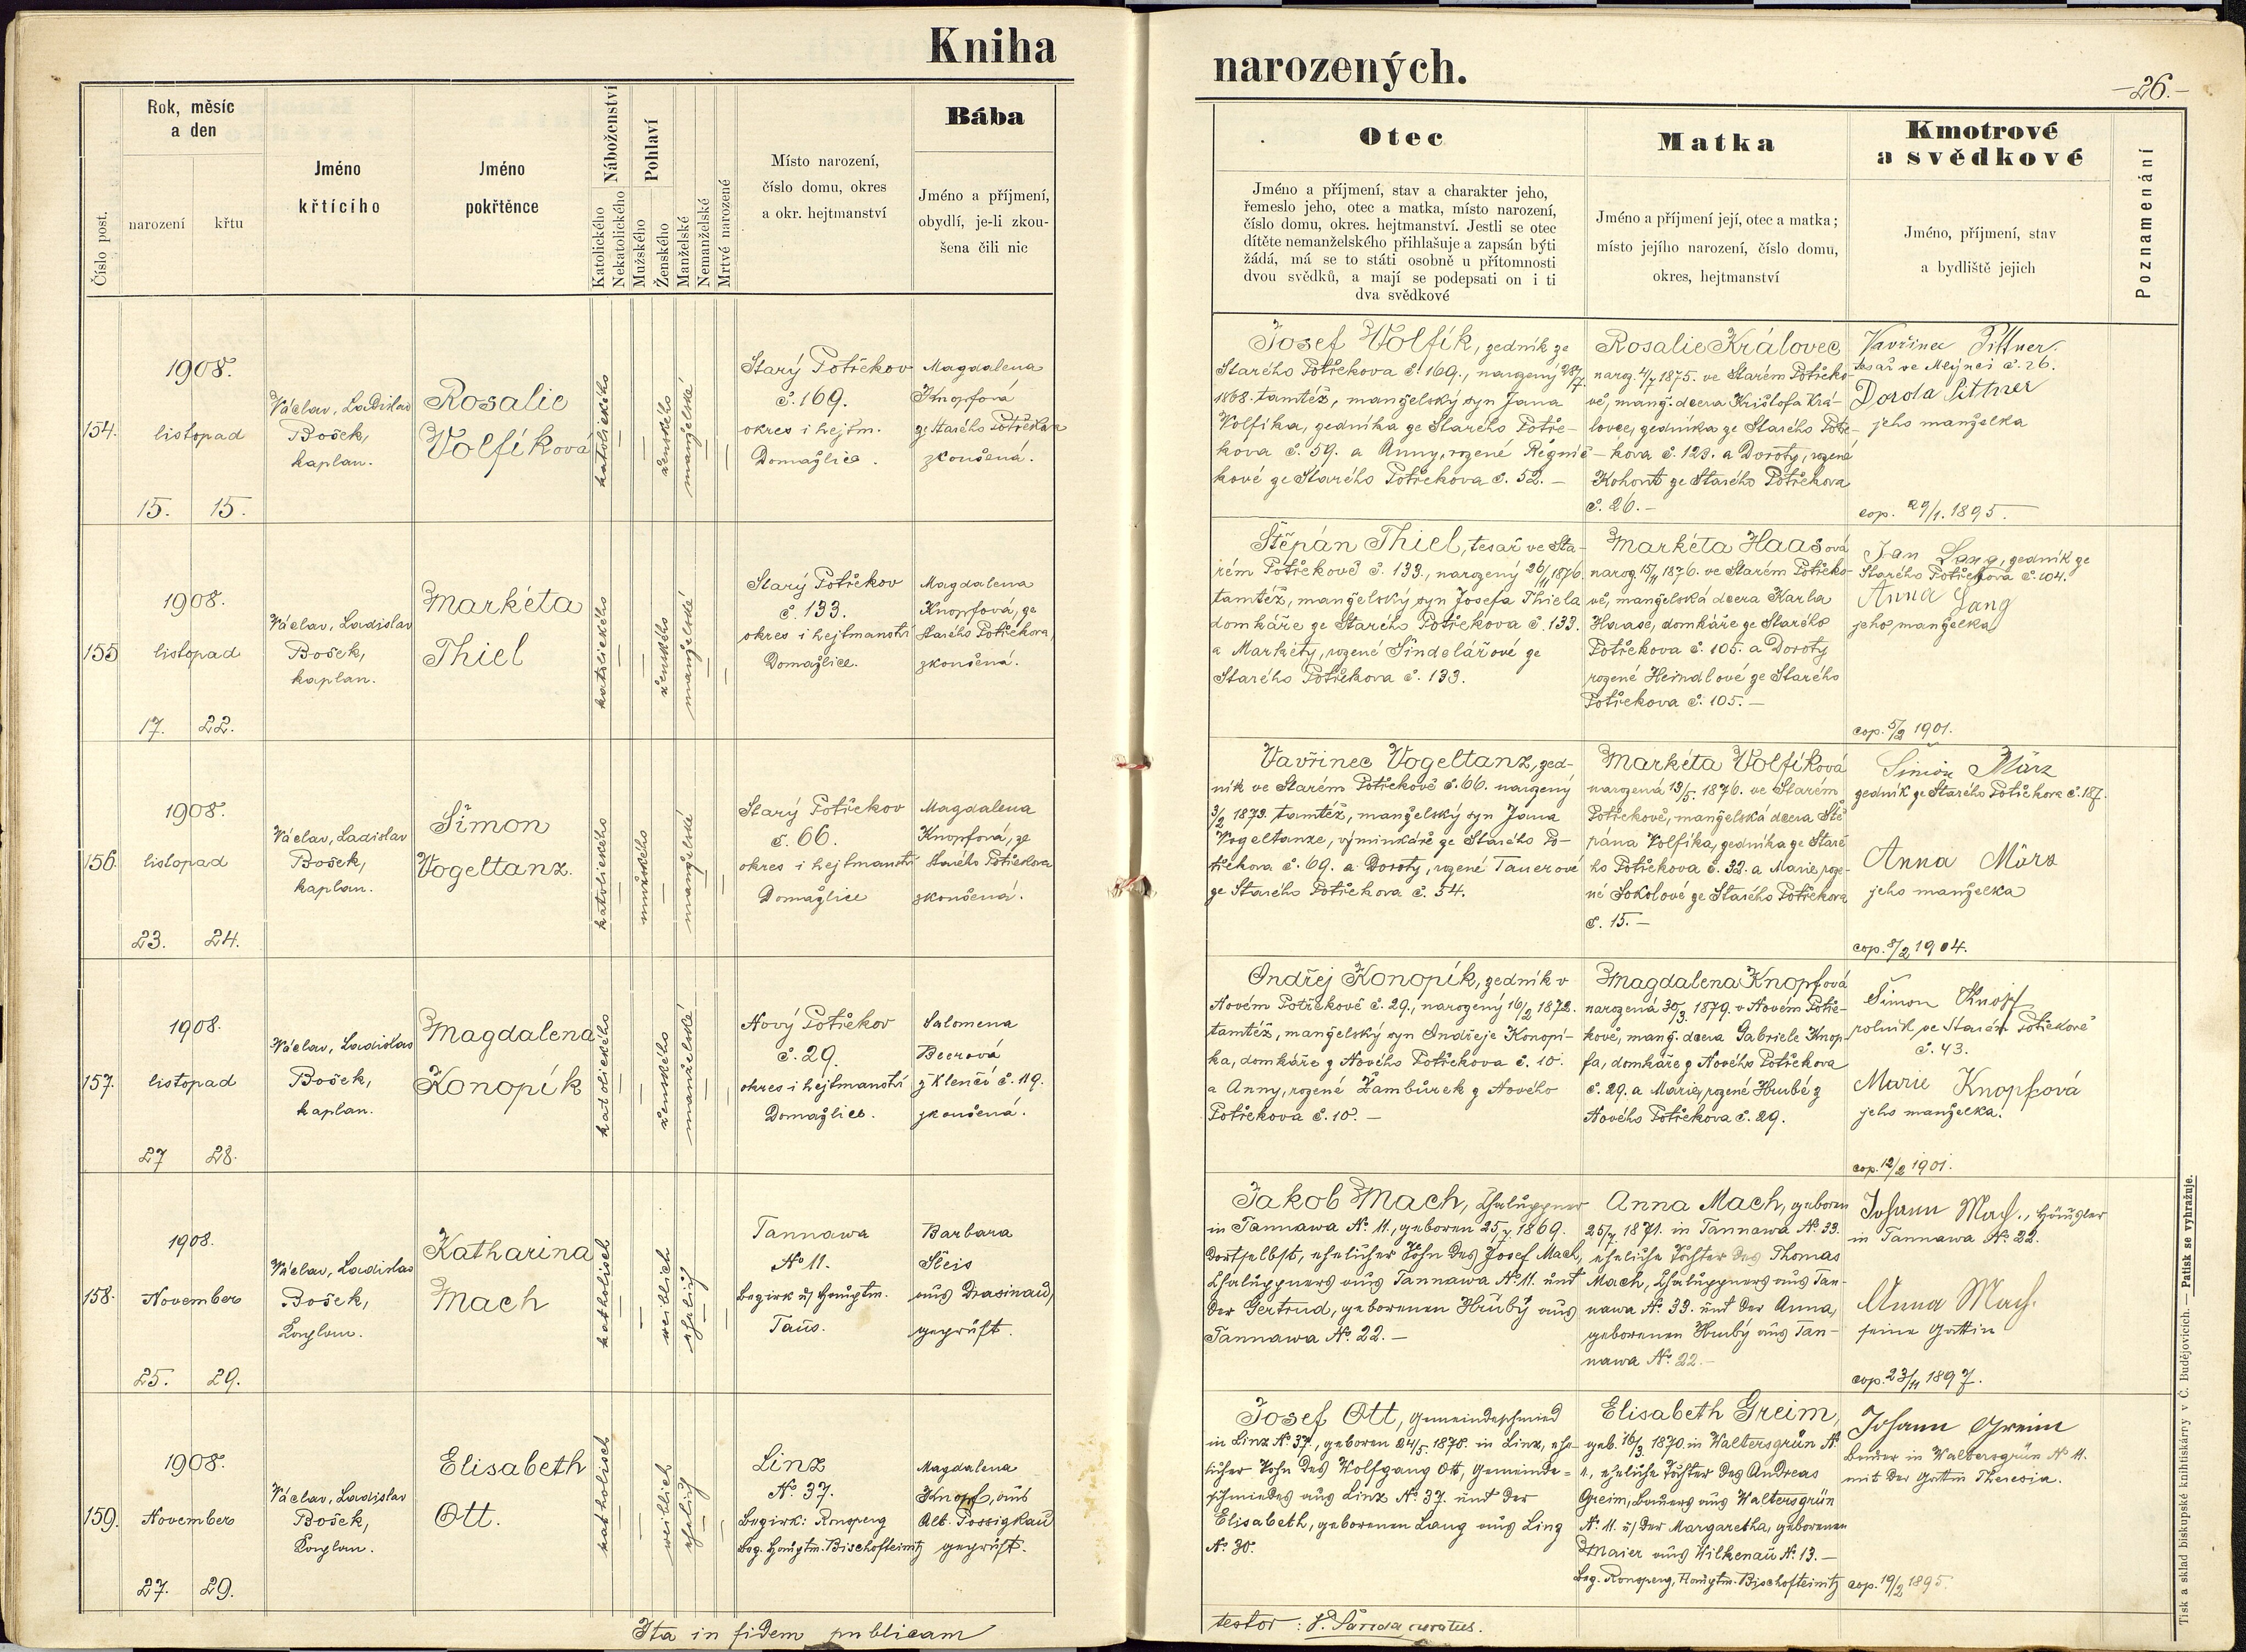 Kniha
narozených.
-26.-
Číslo post.
Rok, měsíc
a den
narození
křtu
Jméno
křtícího
Jméno
pokřtěnce
Náboženství
Katolického
Nekatolického
Pohlaví
Mužského
Ženského
Manželské
Nemanželské
Mrtvé narozené
Místo narození,
číslo domu, okres
a okr. hejtmanství
Bába
Jméno a příjmení,
obydlí, je-li zkou-
šena čili nic
Otec
Jméno a příjmení, stav a charakter jeho,
řemeslo jeho, otec a matka, místo narození,
číslo domu, okres. hejtmanství. Jestli se otec
dítěte nemanželského přihlašuje a zapsán býti
žádá, má se to státi osobně u přítomnosti
dvou svědků, a mají se podepsati on i ti
dva svědkové
Matka
Jméno a příjmení její, otec a matka;
místo jejího narození, číslo domu,
okres, hejtmanství
Kmotrové
a svědkové
Jméno, příjmení, stav
a bydliště jejich
Poznamenání
154.
1908.
listopad
15. 15.
Václav, Ladislav
Bošek,
kaplan.
Rosalie
Volfíková
katolického
ženského
manželské
Starý Potřekov
č. 169.
okres i hejtm.
Domažlice.
Magdalena
Knopfová
ze Starého Potřekova
zkoušená.
Josef Volfík, zedník ze
Starého Potřekova č. 169., narozený 28/7.
1868. tamtéž, manželský syn Jana
Volfíka, zedníka ze Starého Potře-
kova č. 59. a Anny, rozené
kové ze Starého Potřekova č. 52. -
Rosalie Královec
naroz. 4/7 1875. ve Starém Potřeko-
vě, manž. dcera Krištofa Krá-
lovce, zedníka ze Starého Potře-
kova č. 123. a Doroty, rozené
Kohout ze Starého Potřekova
č. 26. -
Vavřinec Pittner,
tesař ve Mlýnci č. 26.
Dorota Pittner
jeho manželka
cop. 29/1. 1895.
155
1908.
listopad
17. 22.
Václav, Ladislav
Bošek,
kaplan.
Markéta
Thiel
katolického
ženského
manželské
Starý Potřekov
č. 133.
okres i hejtmanství
Domažlice.
Magdalena
Knopfová, ze
Starého Potřekova,
zkoušená.
Štěpán Thiel, tesař ve Sta-
rém Potřekově č. 133., narozený 26/11 1876.
tamtéž, manželský syn Josefa Thiela
domkáře ze Starého Potřekova č. 133.
a Markéty, rozené Šindelářové ze
Starého Potřekova č. 133.
Markéta Haasová
naroz. 15/11 1876. ve Starém Potřeko-
vě, manželská dcera Karla
Haase, domkáře ze Starého
Potřekova č. 105. a Doroty
rozené Heindlové ze Starého
Potřekova č. 105. -
Jan Lang, zedník ze
Starého Potřekova č. 104.
Anna Lang
jeho manželka
cop. 5/2 1901.
156.
1908.
listopad
23. 24.
Václav, Ladislav
Bošek,
kaplan.
Šimon
Vogeltanz.
katolického
mužského
manželské
Starý Potřekov
č. 66.
okres i hejtmanství
Domažlice
Magdalena
Knopfová, ze
Starého Potřekova
zkoušená.
Vavřinec Vogeltanz, zed-
ník ve Starém Potřekově č. 66. narozený
3/2 1873. tamtéž, manželský syn Jana
Vogeltanze, výminkáře ze Starého Po-
třekova č. 69. a Doroty, rozené Tauerové
ze Starého Potřekova č. 54.
Markéta Volfíková
narozená 13/5. 1876. ve Starém
Potřekově, manželská dcera Ště-
pána Volfíka, zedníka ze Staré-
ho Potřekova č. 32. a Marie, roze-
né Sokolové ze Starého Potřekova
č. 15. -
Šimon März
zedník ze Starého Potřekova č. 187.
Anna März
jeho manželka
cop. 8/2 1904.
157.
1908.
listopad
27 28.
Václav, Ladislav
Bošek,
kaplan.
Magdalena
Konopík
katolického
ženského
manželské
Nový Potřekov
č. 29.
okres i hejtmanství
Domažlice.
Salomena
Beerová
z Klenčí č. 119.
zkoušená.
Ondřej Konopík, zedník v
Novém Potřekově č. 29., narozený 16/2 1872.
tamtéž, manželský syn Ondřeje Konopí-
ka, domkáře z Nového Potřekova č. 10.
a Anny, rozené Žambůrek z Nového
Potřekova č. 10. -
Magdalena Knopfová
narozená 30/3 1879. v Novém Potře-
kově, manž. dcera Gabriele Knop-
fa, domkáře z Nového Potřekova
č. 29. a Marie, rozené Hrubé z
Nového Potřekova č. 29.
Šimon Knopf
rolník ve Starém Potřekově
č. 43.
Marie Knopfová
jeho manželka.
cop. 12/2 1901.
158.
1908.
November
25. 29.
Václav, Ladislav
Bošek,
Kaplan.
Katharina
Mach
katholisch
weiblich
ehelich
Tannawa
No 11.
Bezirk u/ Hauptm.
Taus.
Barbara
Sleis
aus Drasinau,
geprüft.
Jakob Mach, Chaluppner
in Tannawa No. 11., geboren 25/7 1869.
dortselbst, ehelicher Sohn des Josef Mach,
Chaluppners aus Tannawa No 11. und
der Gertrud, geborenen Hrubý aus
Tannawa No. 22. -
Anna Mach, geboren
25/7. 1871. in Tannawa No. 33.
eheliche Tochter des Thomas
Mach, Chaluppners aus Tan-
nawa No. 33. und der Anna,
geborenen Hrubý aus Tan-
nawa No. 22. -
Johann Mach., Häusler
in Tannawa No. 22.
Anna Mach.
seine Gattin
cop. 23/11 1897.
159.
1908.
November
27. 29.
Václav, Ladislav
Bošek,
Kaplan.
Elisabeth
Ott.
katholisch
weiblich
ehelich
Linz
No. 37.
Bezirk: Ronsperg
Bez. Hauptm. Bischofteinitz
Magdalena
Knopf, aus
Alt. Possigkau
geprüft.
Josef Ott, Gemeindeschmied
in Linz No. 37., geboren 24/5. 1878. in Linz, ehe-
licher Sohn des Wolfgang Ott, Gemeinde-
schmiedes aus Linz No. 37. und der
Elisabeth, geborenen Lang aus Linz
No. 30.
Elisabeth Greim,
geb. 16/3 1870. in Waltersgrün No.
11, eheliche Tochter des Andreas
Greim, Bauers aus Waltersgrün
No. 11. u/ der Margaretha, geborenen
Maier aus Wilkenau No. 13. -
Bez. Ronsperg, Hauptm. Bischofteinitz
Johann Greim
Bauer in Waltersgrün No 11.
mit der Gattin Theresia.
cop. 19/2 1895.
Ita in fidem publicam
testor: curatus.
Tisk a sklad biskupské knihtiskárny v Č. Budějovicích. — Patisk se vyhražuje.